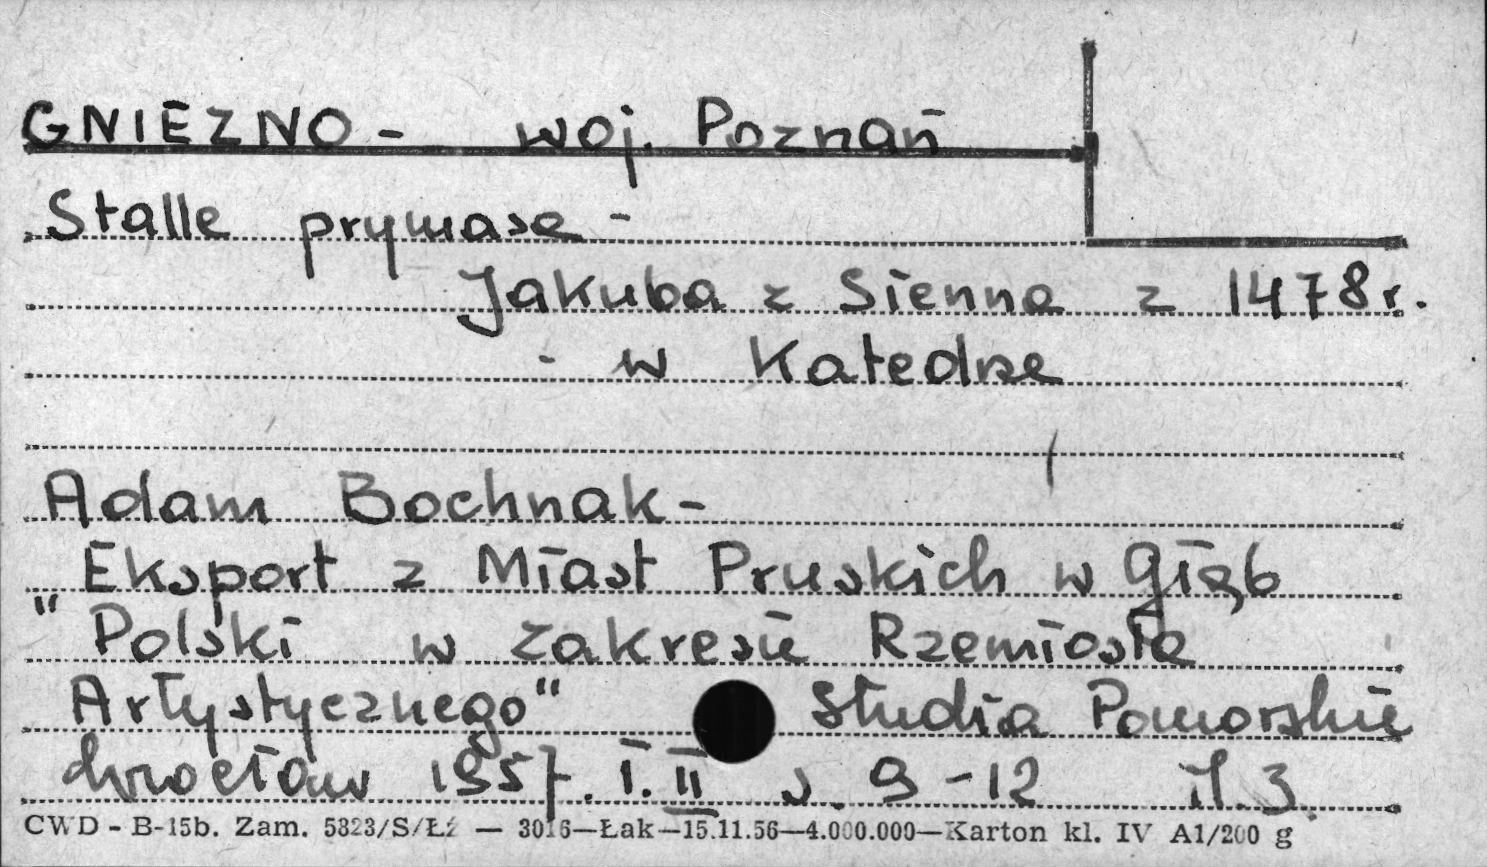 GNIEZNO - woj. Poznań
Stalle prymasa -
Jakuba z Sienna z 1478 r.
- w Katedrze
Adam Bochnak -
Eksport z Miast Pruskich w głąb
"Polski w zakresie Rzemiosła
Artystycznego" Studia Pomorskie
Wrocław 1957. T. II s. 9-12 il. 3.
CWD - B-15b. Zam. 5823/S/Łź — 3016—Łak—15.11.56—4.000.000—Karton kl. IV A1/200 g